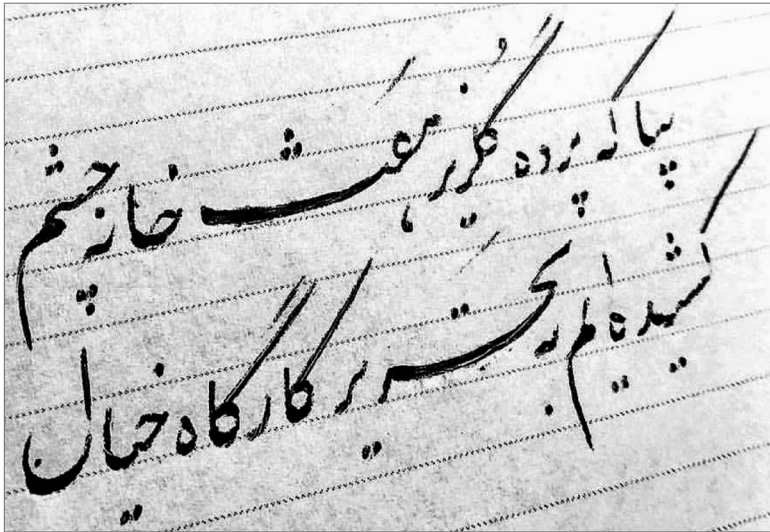 بیا که پرده گلریز هفت خانه چشم
کشیده ایم به تحریر کارگاه خیال